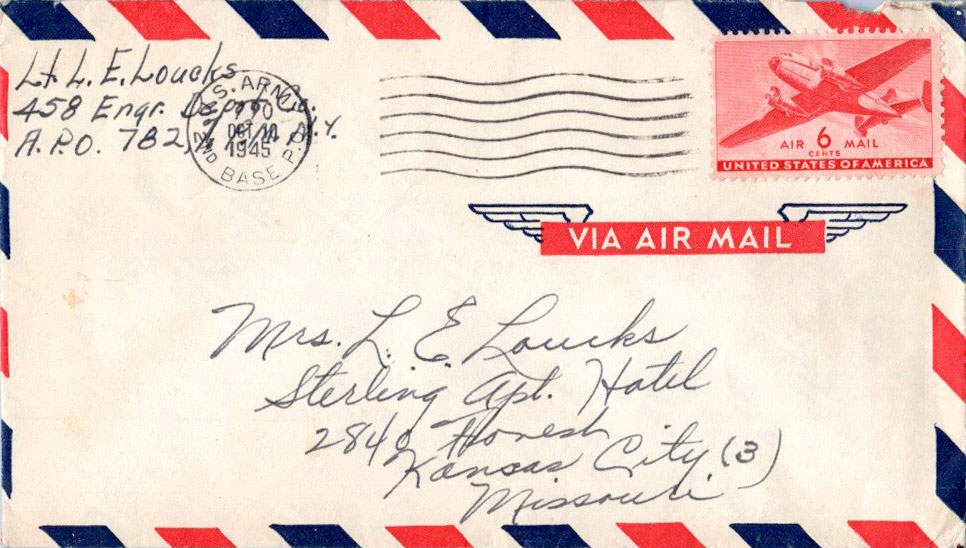 Lt L. E. Loucks
458 Engr. Depot Co.
A.P.O. 782, % P.M. N.Y.
U.S. ARMY
OCT 10
1945
2ND BASE P.O.
AIR 6 MAIL
CENTS
UNITED STATES OF AMERICA
VIA AIR MAIL
Mrs. L. E. Loucks
Sterling Apt. Hotel
2840
Kansas City (3)
Missouri